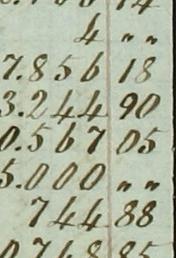 4 " "
7.856 18
3.244 90
0.567 05
5.000 " "
744 88